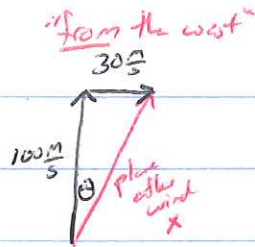 "from the west"
30 m/s
100 m/s
θ
plane
after
wind
x